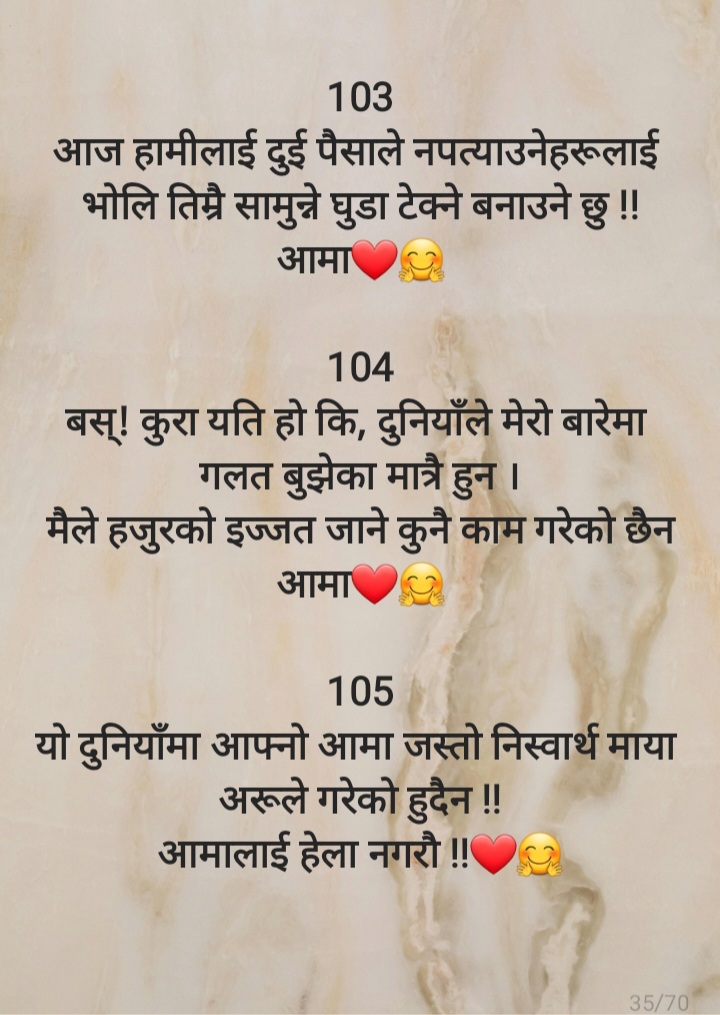 103
आज हामीलाई दुई पैसाले नपत्याउनेहरूलाई
भोलि तिम्रै सामुन्ने घुडा टेक्ने बनाउने छु !!
आमा❤️🤗
104
बस्! कुरा यति हो कि, दुनियाँले मेरो बारेमा
गलत बुझेका मात्रै हुन ।
मैले हजुरको इज्जत जाने कुनै काम गरेको छैन
आमा❤️🤗
105
यो दुनियाँमा आफ्नो आमा जस्तो निस्वार्थ माया
अरूले गरेको हुदैन !!
आमालाई हेला नगरौ !!❤️🤗
35/70